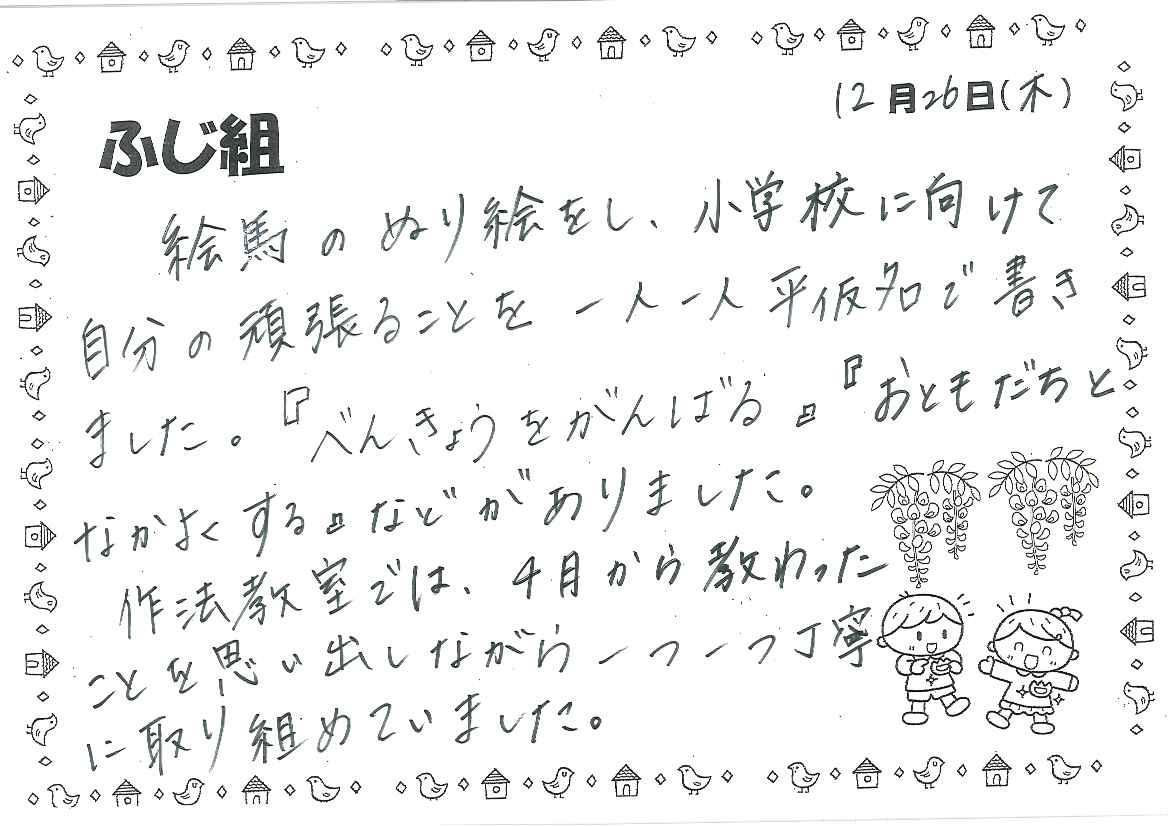 12月26日(木)
ふじ組
絵馬のぬり絵をし、小学校に向けて
自分の頑張ることを一人一人平仮名で書き
ました。『べんきょうをがんばる』『おともだちと
なかよくする』などがありました。
作法教室では、4月から教わった
ことを思い出しながら一つ一つ丁寧
に取り組めていました。